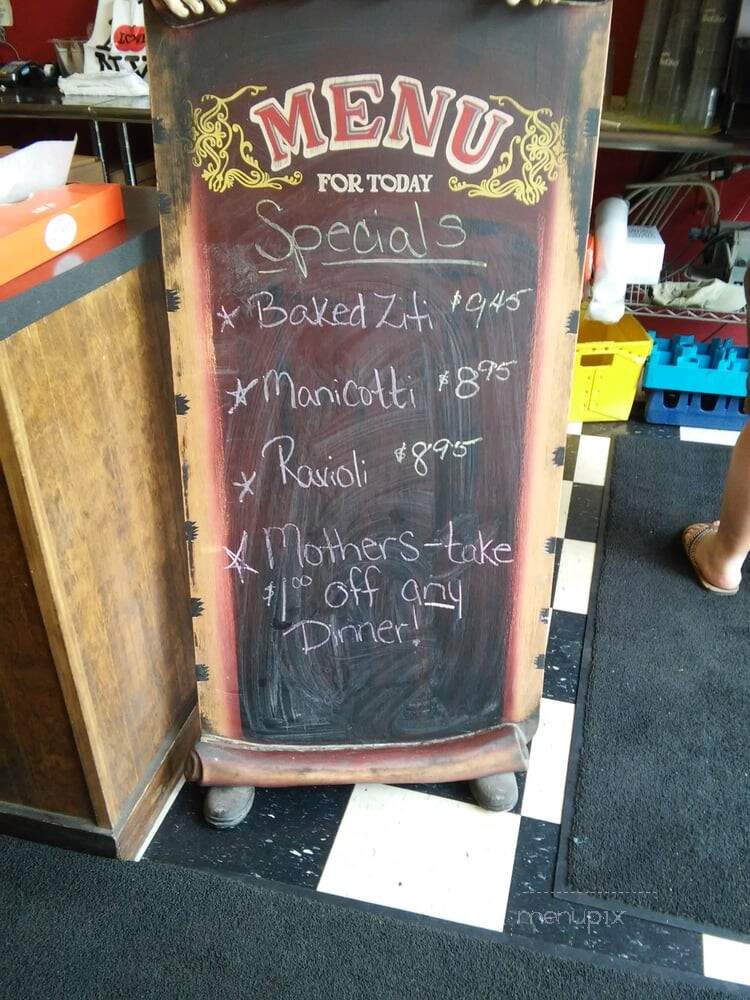 MENU
FOR TODAY
Specials
Baked Ziti $9.45
Manicotti $8.95
Ravioli $8.95
Mothers-take
$1.00 off any
Dinner!
menupix